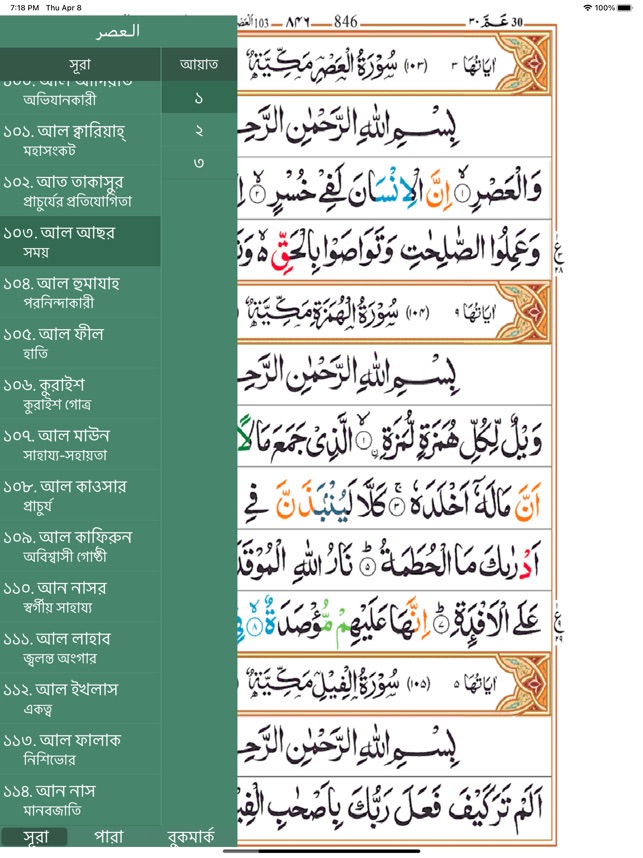 7:18 PM Thu Apr 8
100%
العصر
সূরা
আয়াত
১০০. আল আদিয়াত
অভিযানকারী
১০১. আল ক্বারিয়াহ্
মহাসংকট
১০২. আত তাকাসুর
প্রাচুর্যের প্রতিযোগিতা
১০৩. আল আছর
সময়
১০৪. আল হুমাযাহ
পরনিন্দাকারী
১০৫. আল ফীল
হাতি
১০৬. কুরাইশ
কুরাইশ গোত্র
১০৭. আল মাউন
সাহায্য-সহায়তা
১০৮. আল কাওসার
প্রাচুর্য
১০৯. আল কাফিরুন
অবিশ্বাসী গোষ্ঠী
১১০. আন নাসর
স্বর্গীয় সাহায্য
১১১. আল লাহাব
জ্বলন্ত অংগার
১১২. আল ইখলাস
একত্ব
১১৩. আল ফালাক
নিশিভোর
১১৪. আন নাস
মানবজাতি
১
২
৩
সূরা
পারা
বুকমার্ক
103 ۸۴۶ 846 عَمَّ ۳۰ 30
اٰیَاتُهَا ۳ (۱۰۳) سُوْرَةُ الْعَصْرِ مَكِّیَّةٌ
بِسْمِ اللهِ الرَّحْمٰنِ
وَالْعَصْرِ ۱ اِنَّ الْاِنْسَانَ لَفِیْ خُسْرٍ ۲
وَعَمِلُوا الصّٰلِحٰتِ وَتَوَاصَوْا بِالْحَقِّ
اٰیَاتُهَا ۹ (۱۰۴) سُوْرَةُ الْهُمَزَةِ مَكِّیَّةٌ
بِسْمِ اللهِ الرَّحْمٰنِ
وَیْلٌ لِّكُلِّ هُمَزَةٍ لُّمَزَةِ ۱ الَّذِیْ جَمَعَ مَالًا
اَنَّ مَالَهٗۤ اَخْلَدَهٗ ۳ كَلَّا لَیُنْۢبَذَنَّ فِی
اَدْرٰىكَ مَا الْحُطَمَةُ ۵ نَارُ اللهِ
عَلَی الْاَفْـِٕدَةِ ۷ اِنَّهَا عَلَیْهِمْ مُّؤْصَدَةٌ ۸
اٰیَاتُهَا ۵ (۱۰۵) سُوْرَةُ الْفِیْلِ مَكِّیَّةٌ
بِسْمِ اللهِ الرَّحْمٰنِ
اَلَمْ تَرَ كَیْفَ فَعَلَ رَبُّكَ بِاَصْحٰبِ